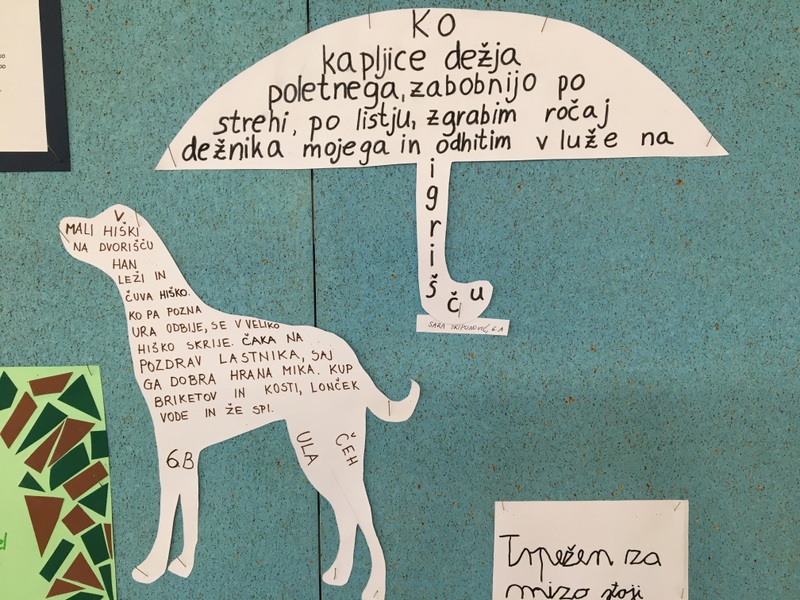 KO
kapljice dežja
poletnega, zabobnijo po
strehi, po listju, zgrabim ročaj
dežnika mojega in odhitim v luže na
i
g
r
i
š
č
u
SARA
6.A
V
MALI HIŠKI
NA DVORIŠČU
HAN
LEŽI IN
ČUVA HIŠKO.
KO PA POZNA
URA ODBIJE, SE V VELIKO
HIŠKO SKRIJE. ČAKA NA
POZDRAV LASTNIKA, SAJ
GA DOBRA HRANA MIKA. KUP
BRIKETOV IN KOSTI, LONČEK
VODE IN ŽE SPI.
6.B
ULA
ČEH
Trpežen za
mizo stoji